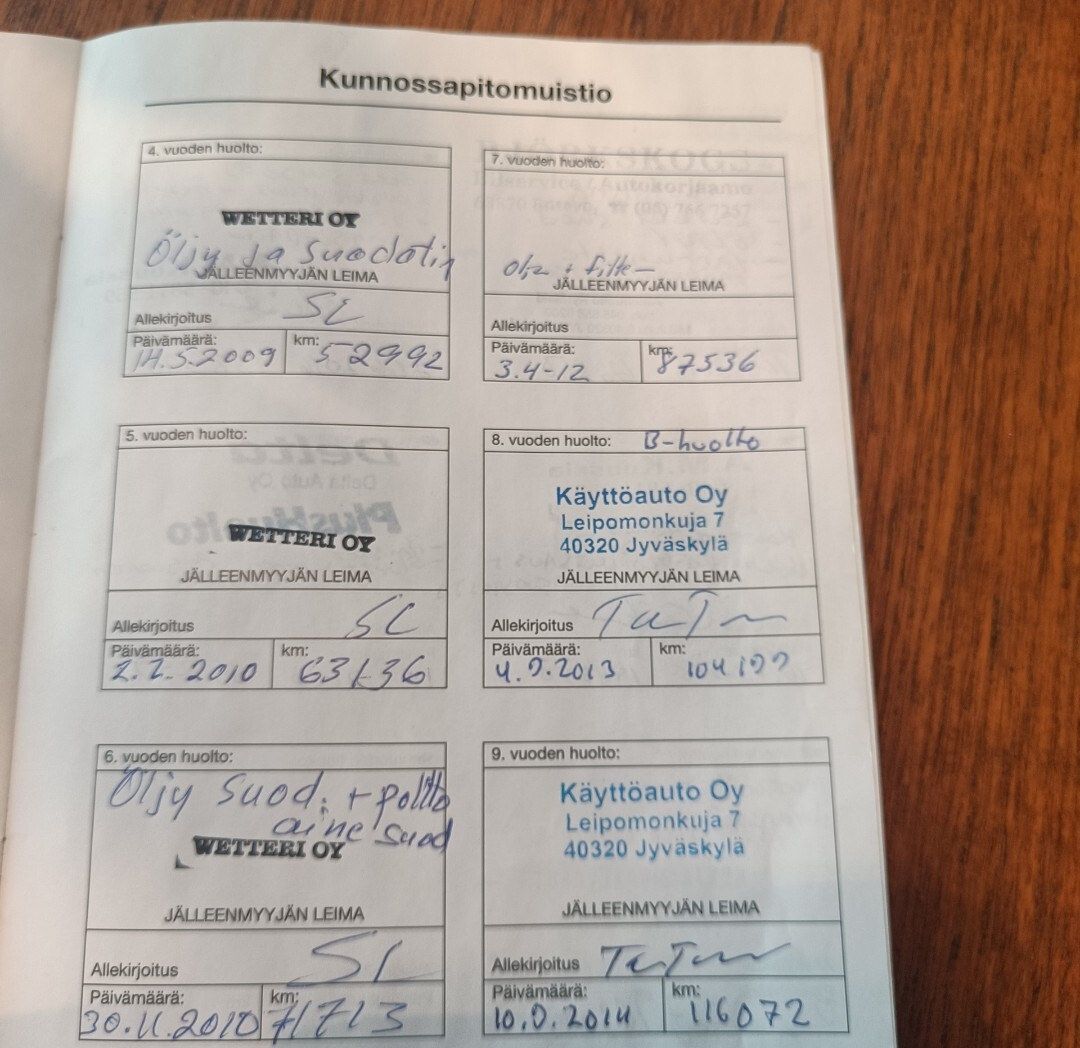 Kunnossapitomuistio
4. vuoden huolto:
WETTERI OY
Öljy ja suodatin
JÄLLEENMYYJÄN LEIMA
Allekirjoitus SL
Päivämäärä: km:
14.5.2009 52992
5. vuoden huolto:
WETTERI OY
JÄLLEENMYYJÄN LEIMA
Allekirjoitus SL
Päivämäärä: km:
2.2.2010 63136
6. vuoden huolto:
Öljy suod. + poltto
aine suod
WETTERI OY
JÄLLEENMYYJÄN LEIMA
Allekirjoitus SL
Päivämäärä: km:
30.11.2010 71713
7. vuoden huolto:
JÄLLEENMYYJÄN LEIMA
Allekirjoitus
Päivämäärä: km:
3.4-12 87536
8. vuoden huolto: B-huolto
Käyttöauto Oy
Leipomonkuja 7
40320 Jyväskylä
JÄLLEENMYYJÄN LEIMA
Allekirjoitus
Päivämäärä: km:
4.9.2013 104199
9. vuoden huolto:
Käyttöauto Oy
Leipomonkuja 7
40320 Jyväskylä
JÄLLEENMYYJÄN LEIMA
Allekirjoitus
Päivämäärä: km:
116072